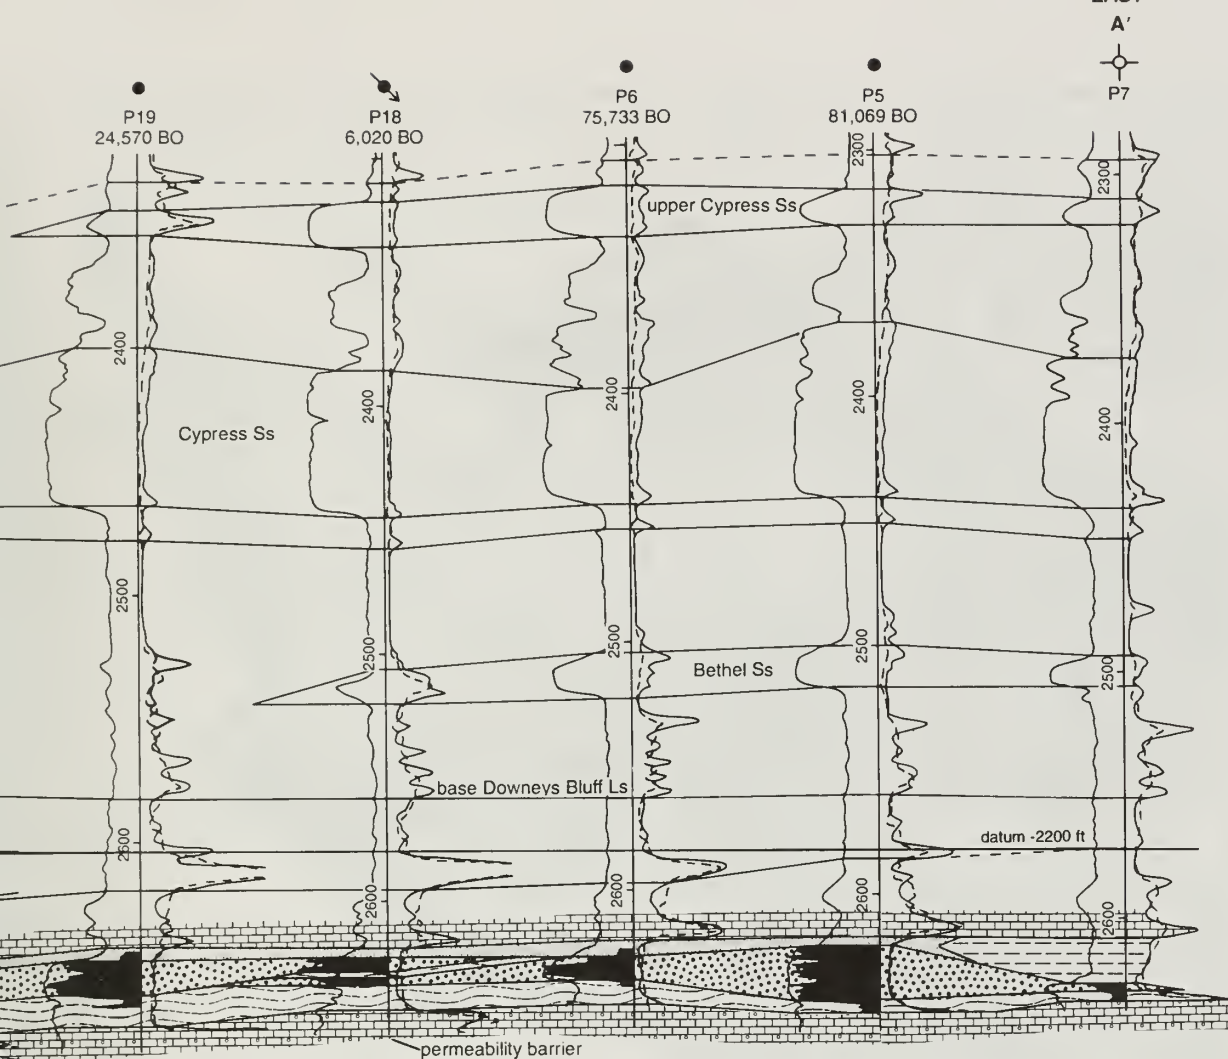 A′
P19
24,570 BO
P18
6,020 BO
P6
75,733 BO
P5
81,069 BO
P7
2300
2300
upper Cypress Ss
2400
2400
2400
2400
2400
Cypress Ss
2500
2500
2500
2500
2500
Bethel Ss
base Downeys Bluff Ls
datum -2200 ft
2600
2600
2600
2600
2600
permeability barrier